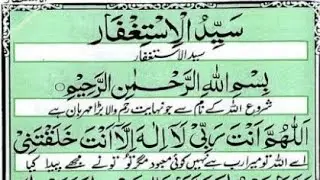 سَيِّدُ الْاِسْتِغْفَار
سید الاستغفار
بِسْمِ اللهِ الرَّحْمٰنِ الرَّحِيْمِ
شروع اللہ کے نام سے جو نہایت رحم والا بڑا مہربان ہے
اَللّٰهُمَّ اَنْتَ رَبِّيْ لَا اِلٰهَ اِلَّا اَنْتَ خَلَقْتَنِيْ
اے اللہ تو میرا رب ہے نہیں کوئی معبود مگر تو تو نے مجھے پیدا کیا